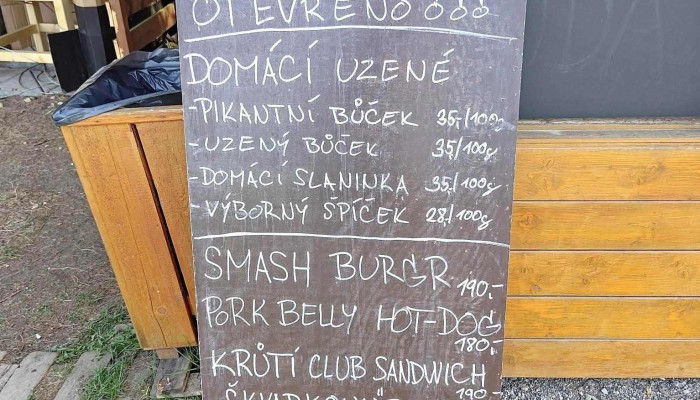 OTEVŘENO
DOMÁCÍ UZENÉ
-PIKANTNÍ BŮČEK 35,-/100g
-UZENÝ BŮČEK 35/100g
-DOMÁCÍ SLANINKA 35,/100g
-VÝBORNÝ ŠPÍČEK 28,/100g
SMASH BURGR 190,-
PORK BELLY HOT-DOG
180,-
KRŮTÍ CLUB SANDWICH
190,-